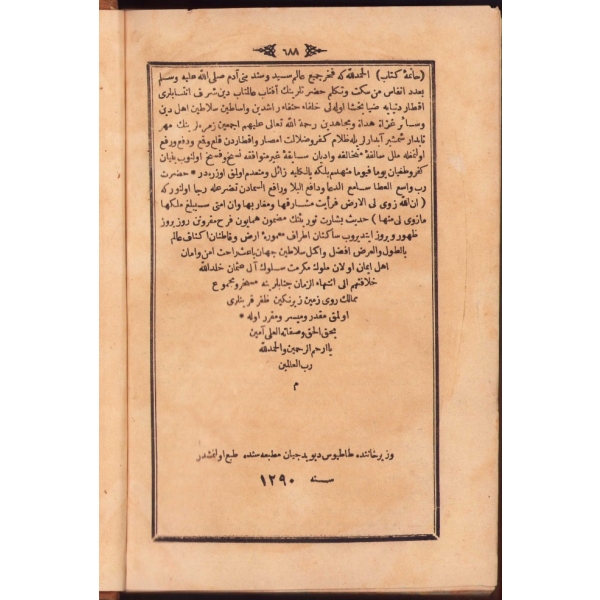 ٦٨٨
(خاتمهٔ كتاب) الحمدلله كه فخر جميع عالم سيد و سند بنى آدم صلى الله عليه وسلم
بعدد انفاس من سكت وتكلم حضرتلرينك آفتاب عالمتاب دين شرف انتسابلرى
اقطار دنيايه ضيا بخشا اوله لى خلفاء حنفاء راشدين واساطين سلاطين اهل دين
وسائر غزاة هداة ومجاهدين رحمة الله تعالى عليهم اجمعين زمره لرينك مهر
تابدار شمشير آبدارلريله ظلام كفر وضلالت امصار واقطاردن قلع وقع ودفع ورفع
اولنمغله ملل سالفهٔ متخالفه واديان سابقهٔ غير متوافقه نسخ وفسخ اولنوب بنيان
كفر وطغيان يوما فيوما منهدم بلكه بالكليه زائل ومنعدم اولمق اوزره در * حضرت
رب واسع العطا سامع الدعا ودافع البلا ورافع السمادن تضرعله رجا اولنوركه
(ان الله زوى لى الارض فرأيت مشارقها ومغاربها وان امتى سيبلغ ملكها
مازوى لى منها) حديث بشارت توريثنك مضمون همايون فرح مقرونى روز بروز
ظهور وبروز ايتديروب ساكنان اطراف معمورهٔ ارض وقاطنان اكناف عالم
بالطول والعرض افضل واكمل سلاطين جهان باعث راحت امن وامان
اهل ايمان اولان ملوك مكرمت سلوك آل عثمان خلدالله
خلافتهم الى انتهاء الزمان جنابلرينه مسخر ومجموع
ممالك روى زمين زير نكين ظفر قرينلرى
اولمق مقدر وميسر ومقرر اوله *
بحق الحق وصفاته العلى آمين
يا ارحم الراحمين والحمدلله
رب العالمين
م
وزيرخاننده طاطيوس ديويدجيان مطبعه سنده طبع اولنمشدر
سنه ١٢٩٠